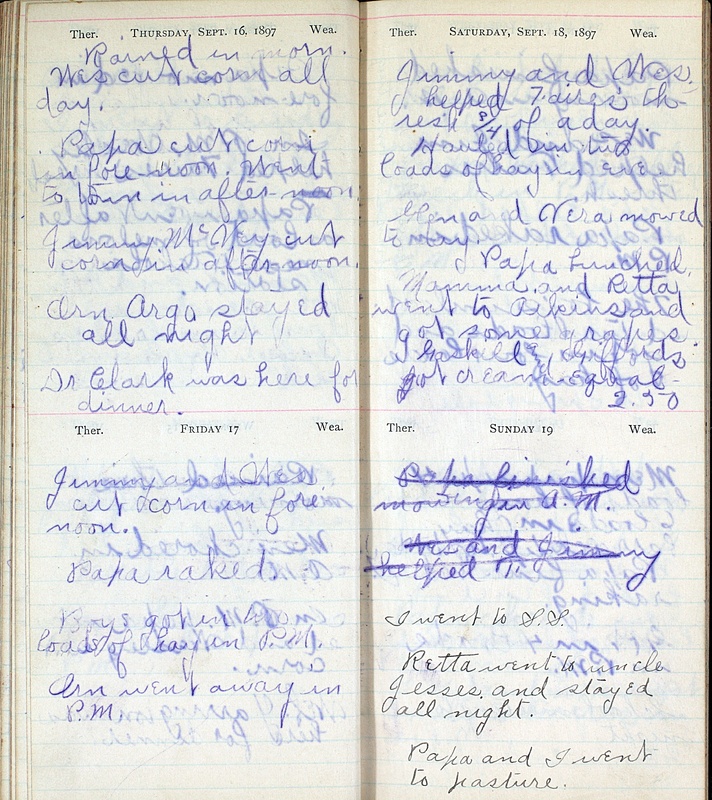 Ther. THURSDAY, SEPT. 16, 1897 Wea.
Rained in morn.
Wes cut corn all
day.
Papa cut corn
in fore noon. Went
to town in after-noon
Jimmy McVey cut
corn in after-noon.
Orn Argo stayed
all night
Dr Clark was here for
dinner.
Ther. FRIDAY 17 Wea.
Jimmy and Wes
cut corn in fore
noon.
Papa raked.
Boys got in two
loads of hay in P.M.
Orn went away in
P.M.
Ther. SATURDAY, SEPT. 18, 1897 Wea.
Jimmy and Wes.
helped th-
resh 3/4 of a day.
Hauled in two
loads of hay in eve.
Glen and Vera mowed
to day.
Papa
Mamma and Retta
went to and
got some grapes.
Gaskill &
got cream
2.50
Ther. SUNDAY 19 Wea.
Papa finished
mowing in A.M.
Wes and Jimmy
helped T.
I went to S.S.
Retta went to uncle
Jesses, and stayed
all night.
Papa and I went
to pasture.